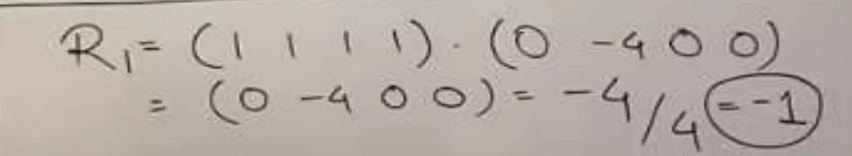 R₁ = (1 1 1 1) . (0 -4 0 0)
= (0 -4 0 0) = -4/4 = -1